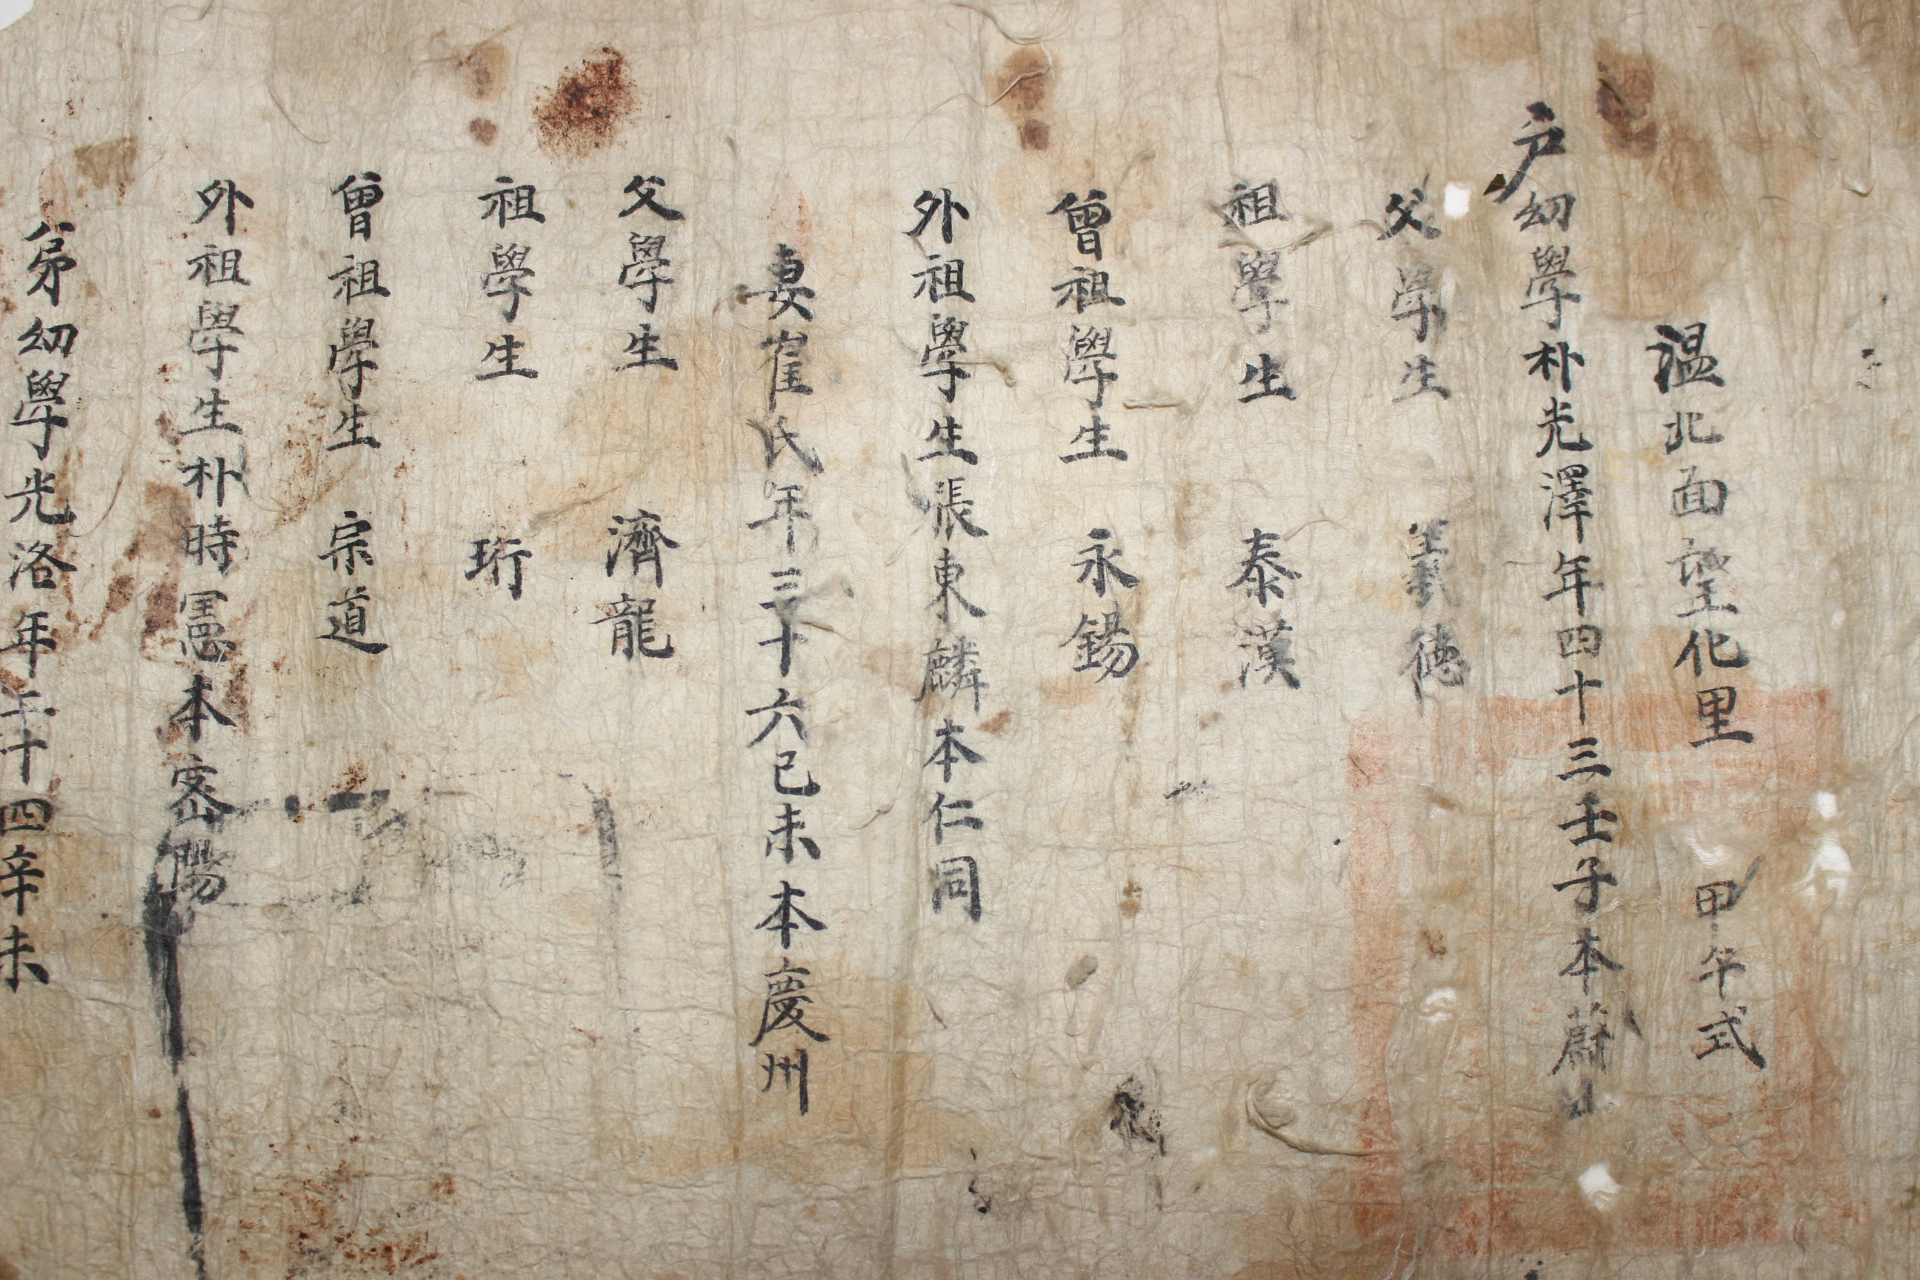 温北面望化里 甲午式
户幼學朴光澤年四十三壬子本蔚山
父學生 義德
祖學生 泰漢
曾祖學生 永錫
外祖學生張東麟本仁同
妻崔氏年三十六己未本慶州
父學生 濟龍
祖學生 珩
曾祖學生 宗道
外祖學生朴時憲本密陽
弟幼學光洛年二十四辛未